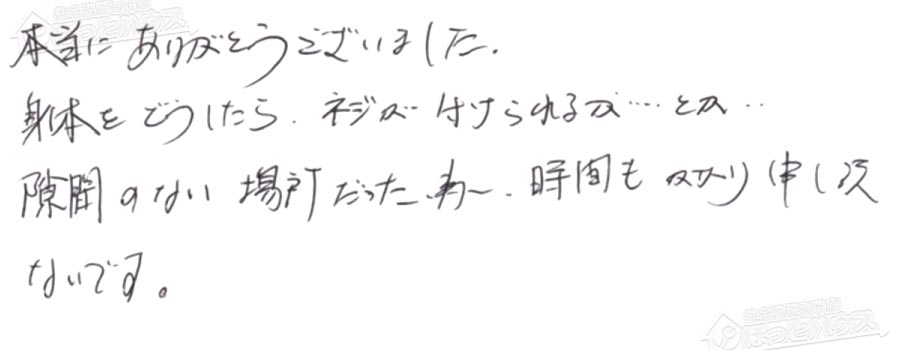 本当にありがとうございました.
身体をどうしたら.ネジが付けられるか‥‥とか‥
隙間のない場所だった.わ〜.時間もかかり申し訳
ないです。
ほっとハウス
ほっとハウス